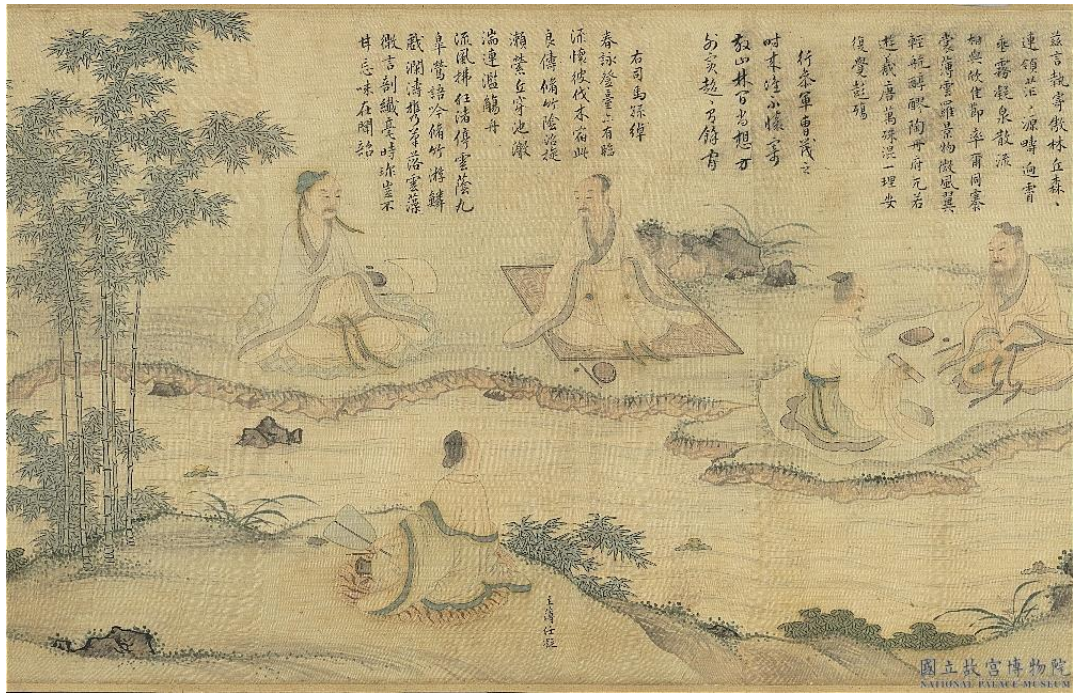 茲言執寄敖林丘森、
連領茫、源疇逈霄
垂霧凝泉散流
相與欣佳節率爾同褰
裳薄雲羅景物微風翼
輕航醇醪陶丹府兀若
遊羲唐萬殊混一理安
復覺彭殤
行參軍曹茂之
時來誰不懷寄
散山林間尚想方
外賓超、有餘閒
右司馬孫綽
春詠登臺亦有臨
流懷彼伐木宿此
良儔脩竹陰沼旋
瀨縈丘穿池激
湍連濫觴舟
流風拂枉渚停雲蔭九
皋鶯語吟脩竹游鱗
戲瀾濤攜筆落雲藻
微言剖纖毫時珍豈不
甘忘味在聞韶
主簿任凝
國立故宮博物院
NATIONAL PALACE MUSEUM